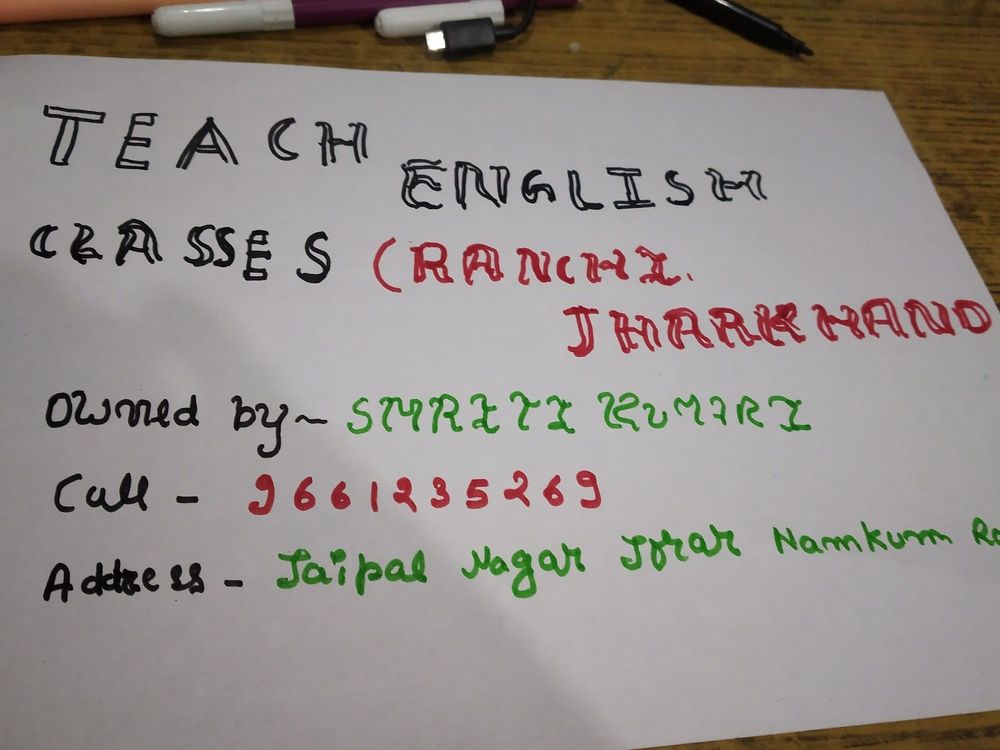 TEACH ENGLISH
CLASSES (RANCHI.
JHARKHAND
Owned by~ SMRITI KUMARI
Call - 9661235269
Address - Jaipal Nagar Jorar Namkum Ra